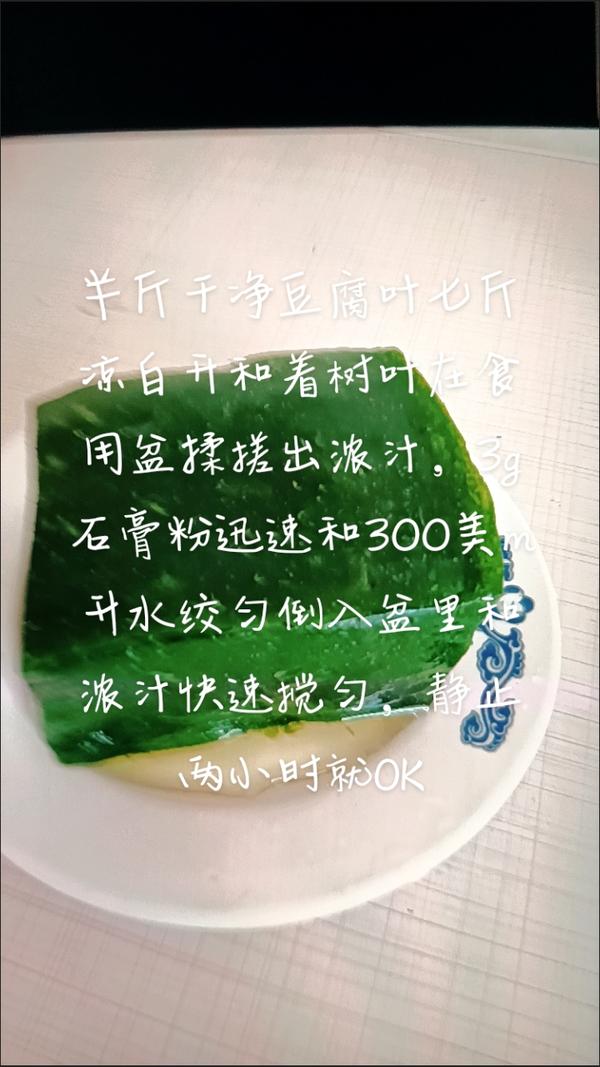 半斤干净豆腐叶七斤
凉白开和着树叶在食
用盆揉搓出浓汁，3g
石膏粉迅速和300美m
升水绞匀倒入盆里和
浓汁快速搅匀，静止
两小时就OK